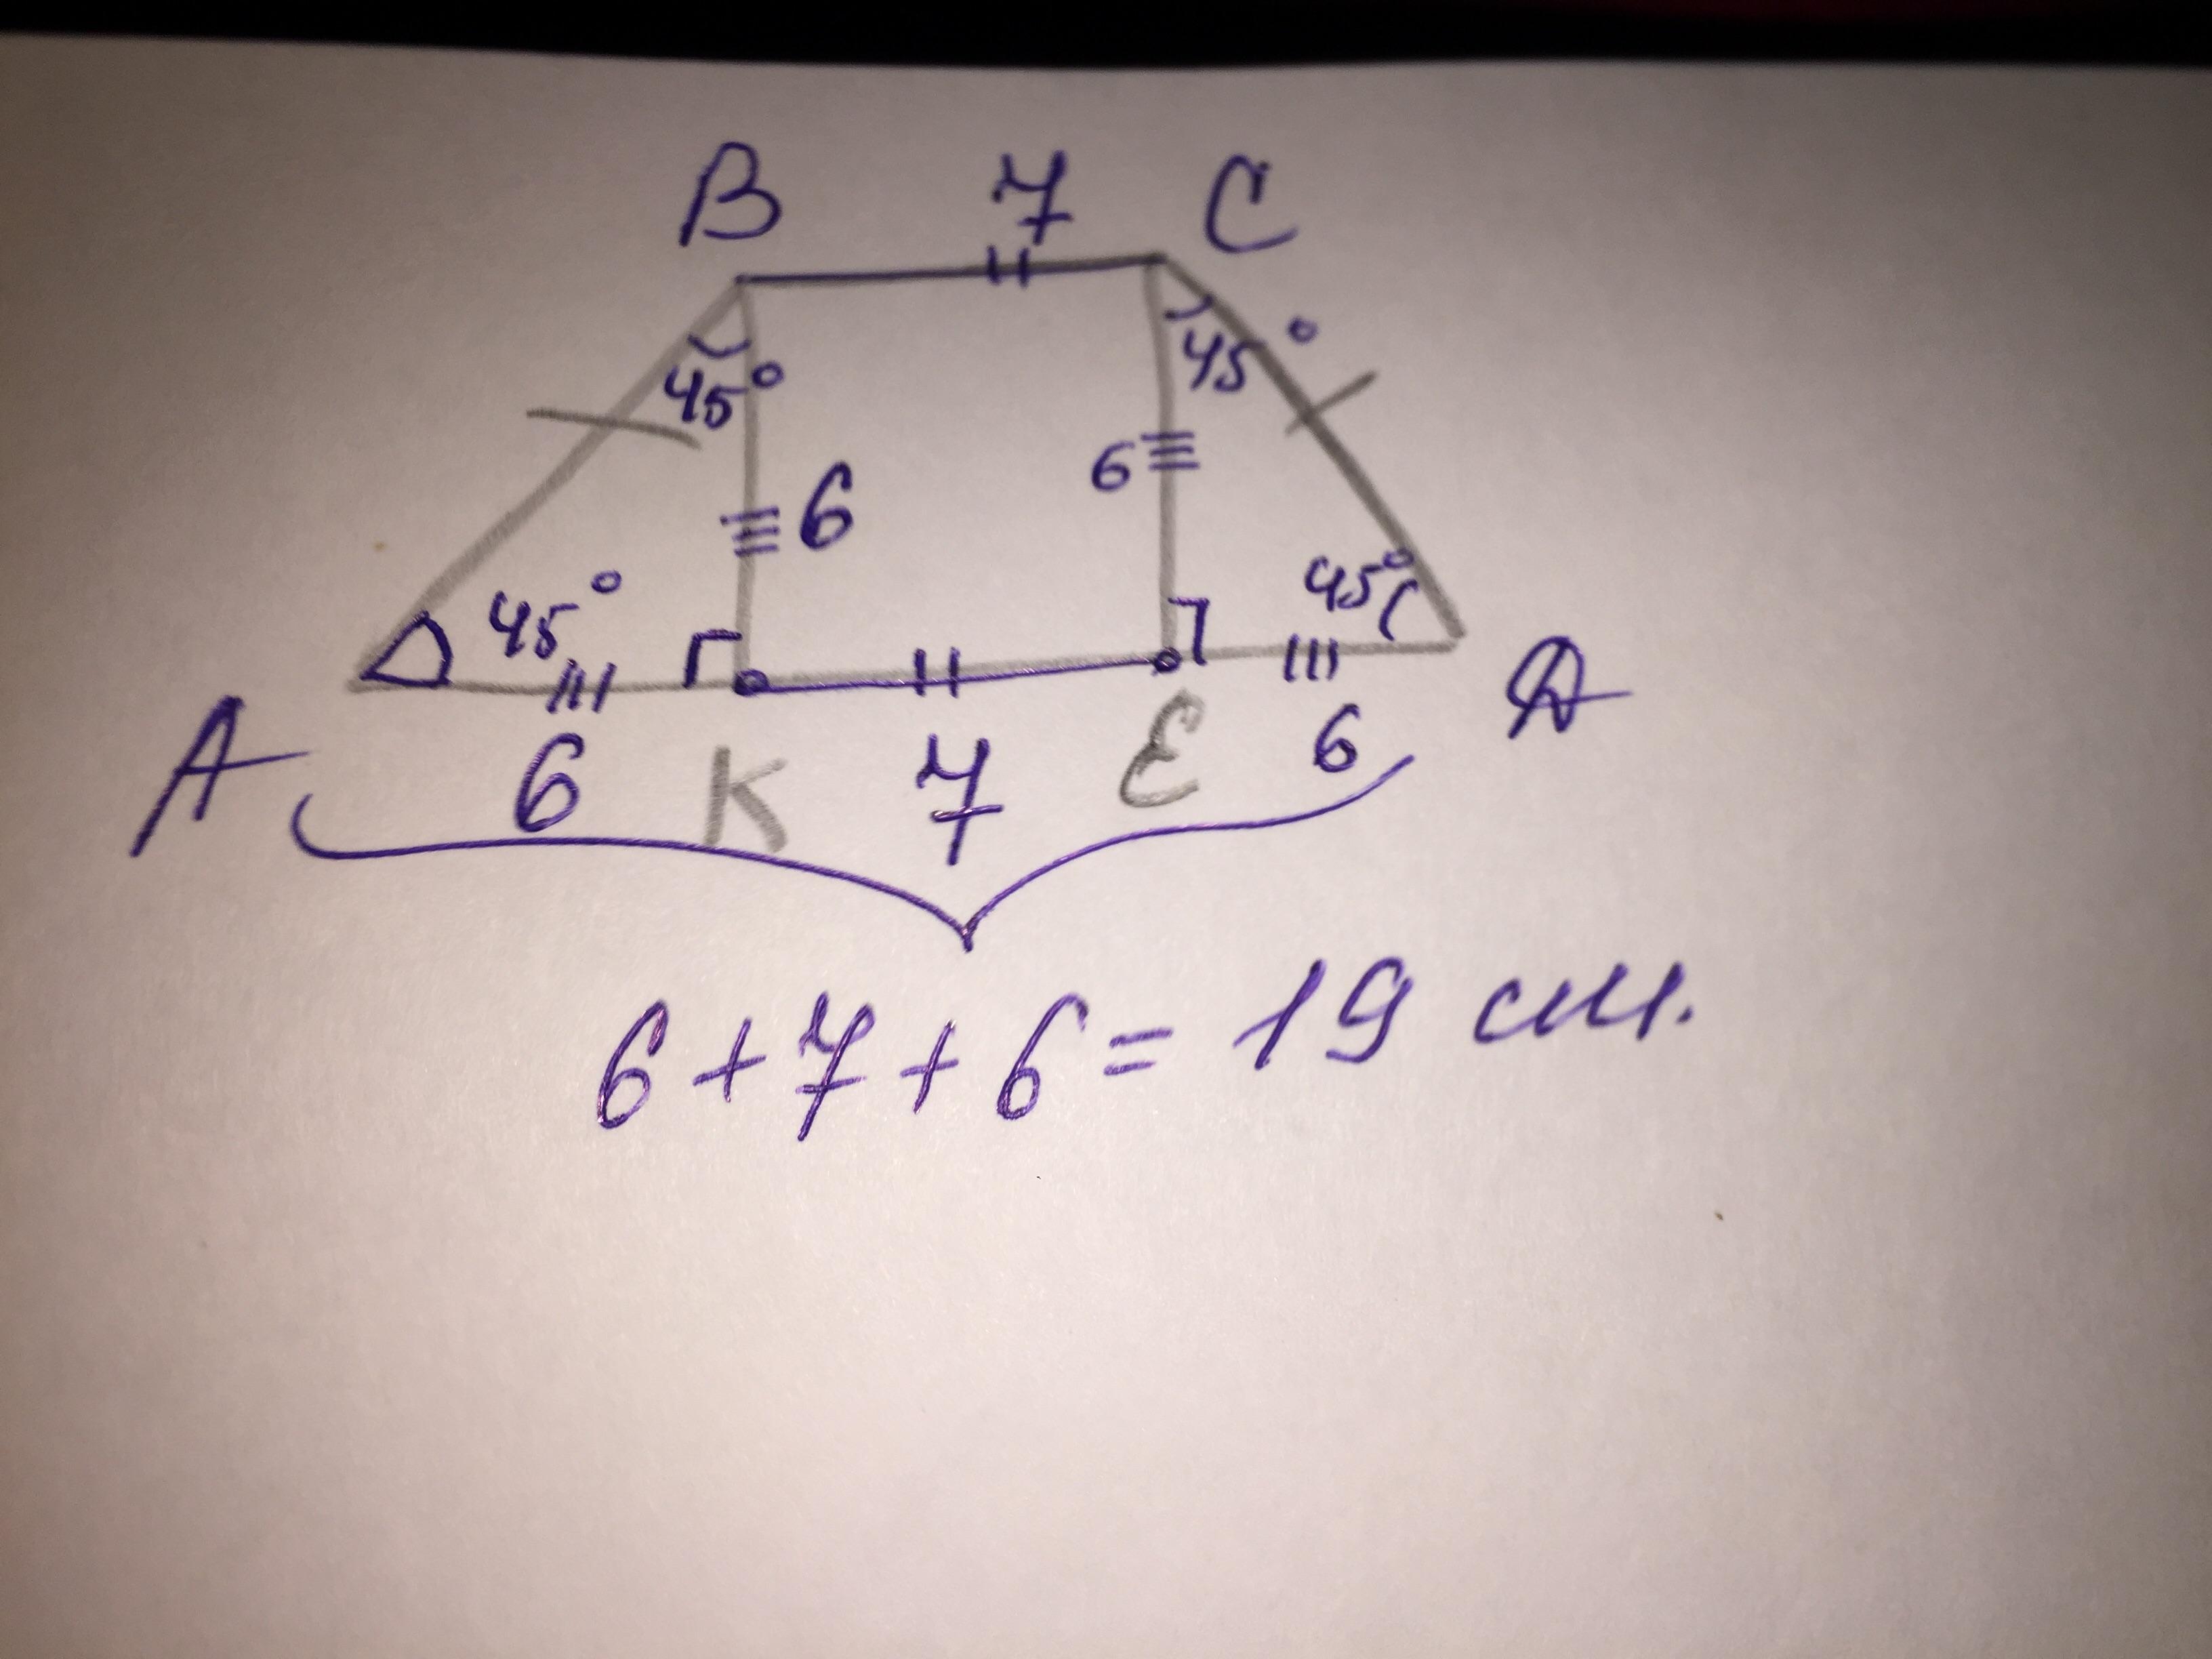 B 7 C
45° 45°
6 6
45° 45°
A 6 K 7 E 6 Д
6+7+6= 19 см.